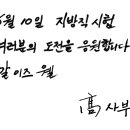 6월 10일 지방직 시험
여러분의 도전을 응원합니다
갈 이즈 웰
高 사부